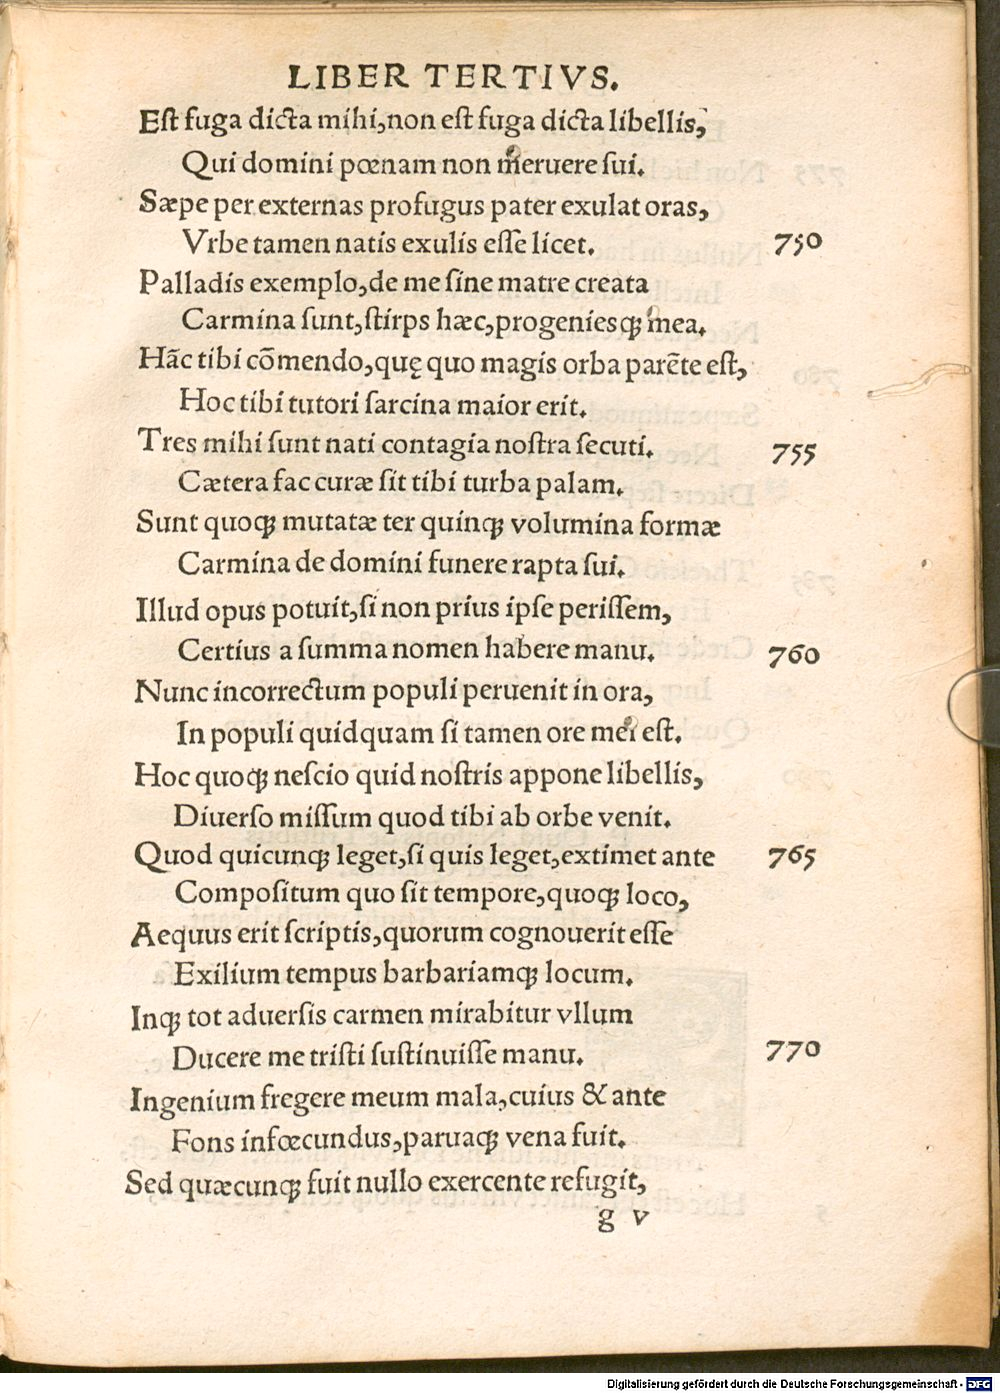 LIBER TERTIVS.
Eſt fuga dicta mihi,non eſt fuga dicta libellis,
Qui domini pœnam non meruere ſui.
Sæpe per externas profugus pater exulat oras,
Vrbe tamen natis exulis eſſe licet. 750
Palladis exemplo,de me ſine matre creata
Carmina ſunt,ſtirps hæc,progeniesq; mea.
Hāc tibi cōmendo,quę quo magis orba parēte eſt,
Hoc tibi tutori ſarcina maior erit.
Tres mihi ſunt nati contagia noſtra ſecuti. 755
Cætera fac curæ ſit tibi turba palam.
Sunt quoq; mutatæ ter quinq; volumina formæ
Carmina de domini funere rapta ſui.
Illud opus potuit,ſi non prius ipſe periſſem,
Certius a ſumma nomen habere manu. 760
Nunc incorrectum populi peruenit in ora,
In populi quidquam ſi tamen ore mei eſt.
Hoc quoq; neſcio quid noſtris appone libellis,
Diuerſo miſſum quod tibi ab orbe venit.
Quod quicunq; leget,ſi quis leget,extimet ante 765
Compoſitum quo ſit tempore,quoq; loco,
Aequus erit ſcriptis,quorum cognouerit eſſe
Exilium tempus barbariamq; locum.
Inq; tot aduerſis carmen mirabitur vllum
Ducere me triſti ſuſtinuiſſe manu. 770
Ingenium fregere meum mala,cuius & ante
Fons infœcundus,paruaq; vena fuit.
Sed quæcunq; fuit nullo exercente refugit,
g v
Digitalisierung gefördert durch die Deutsche Forschungsgemeinschaft - DFG